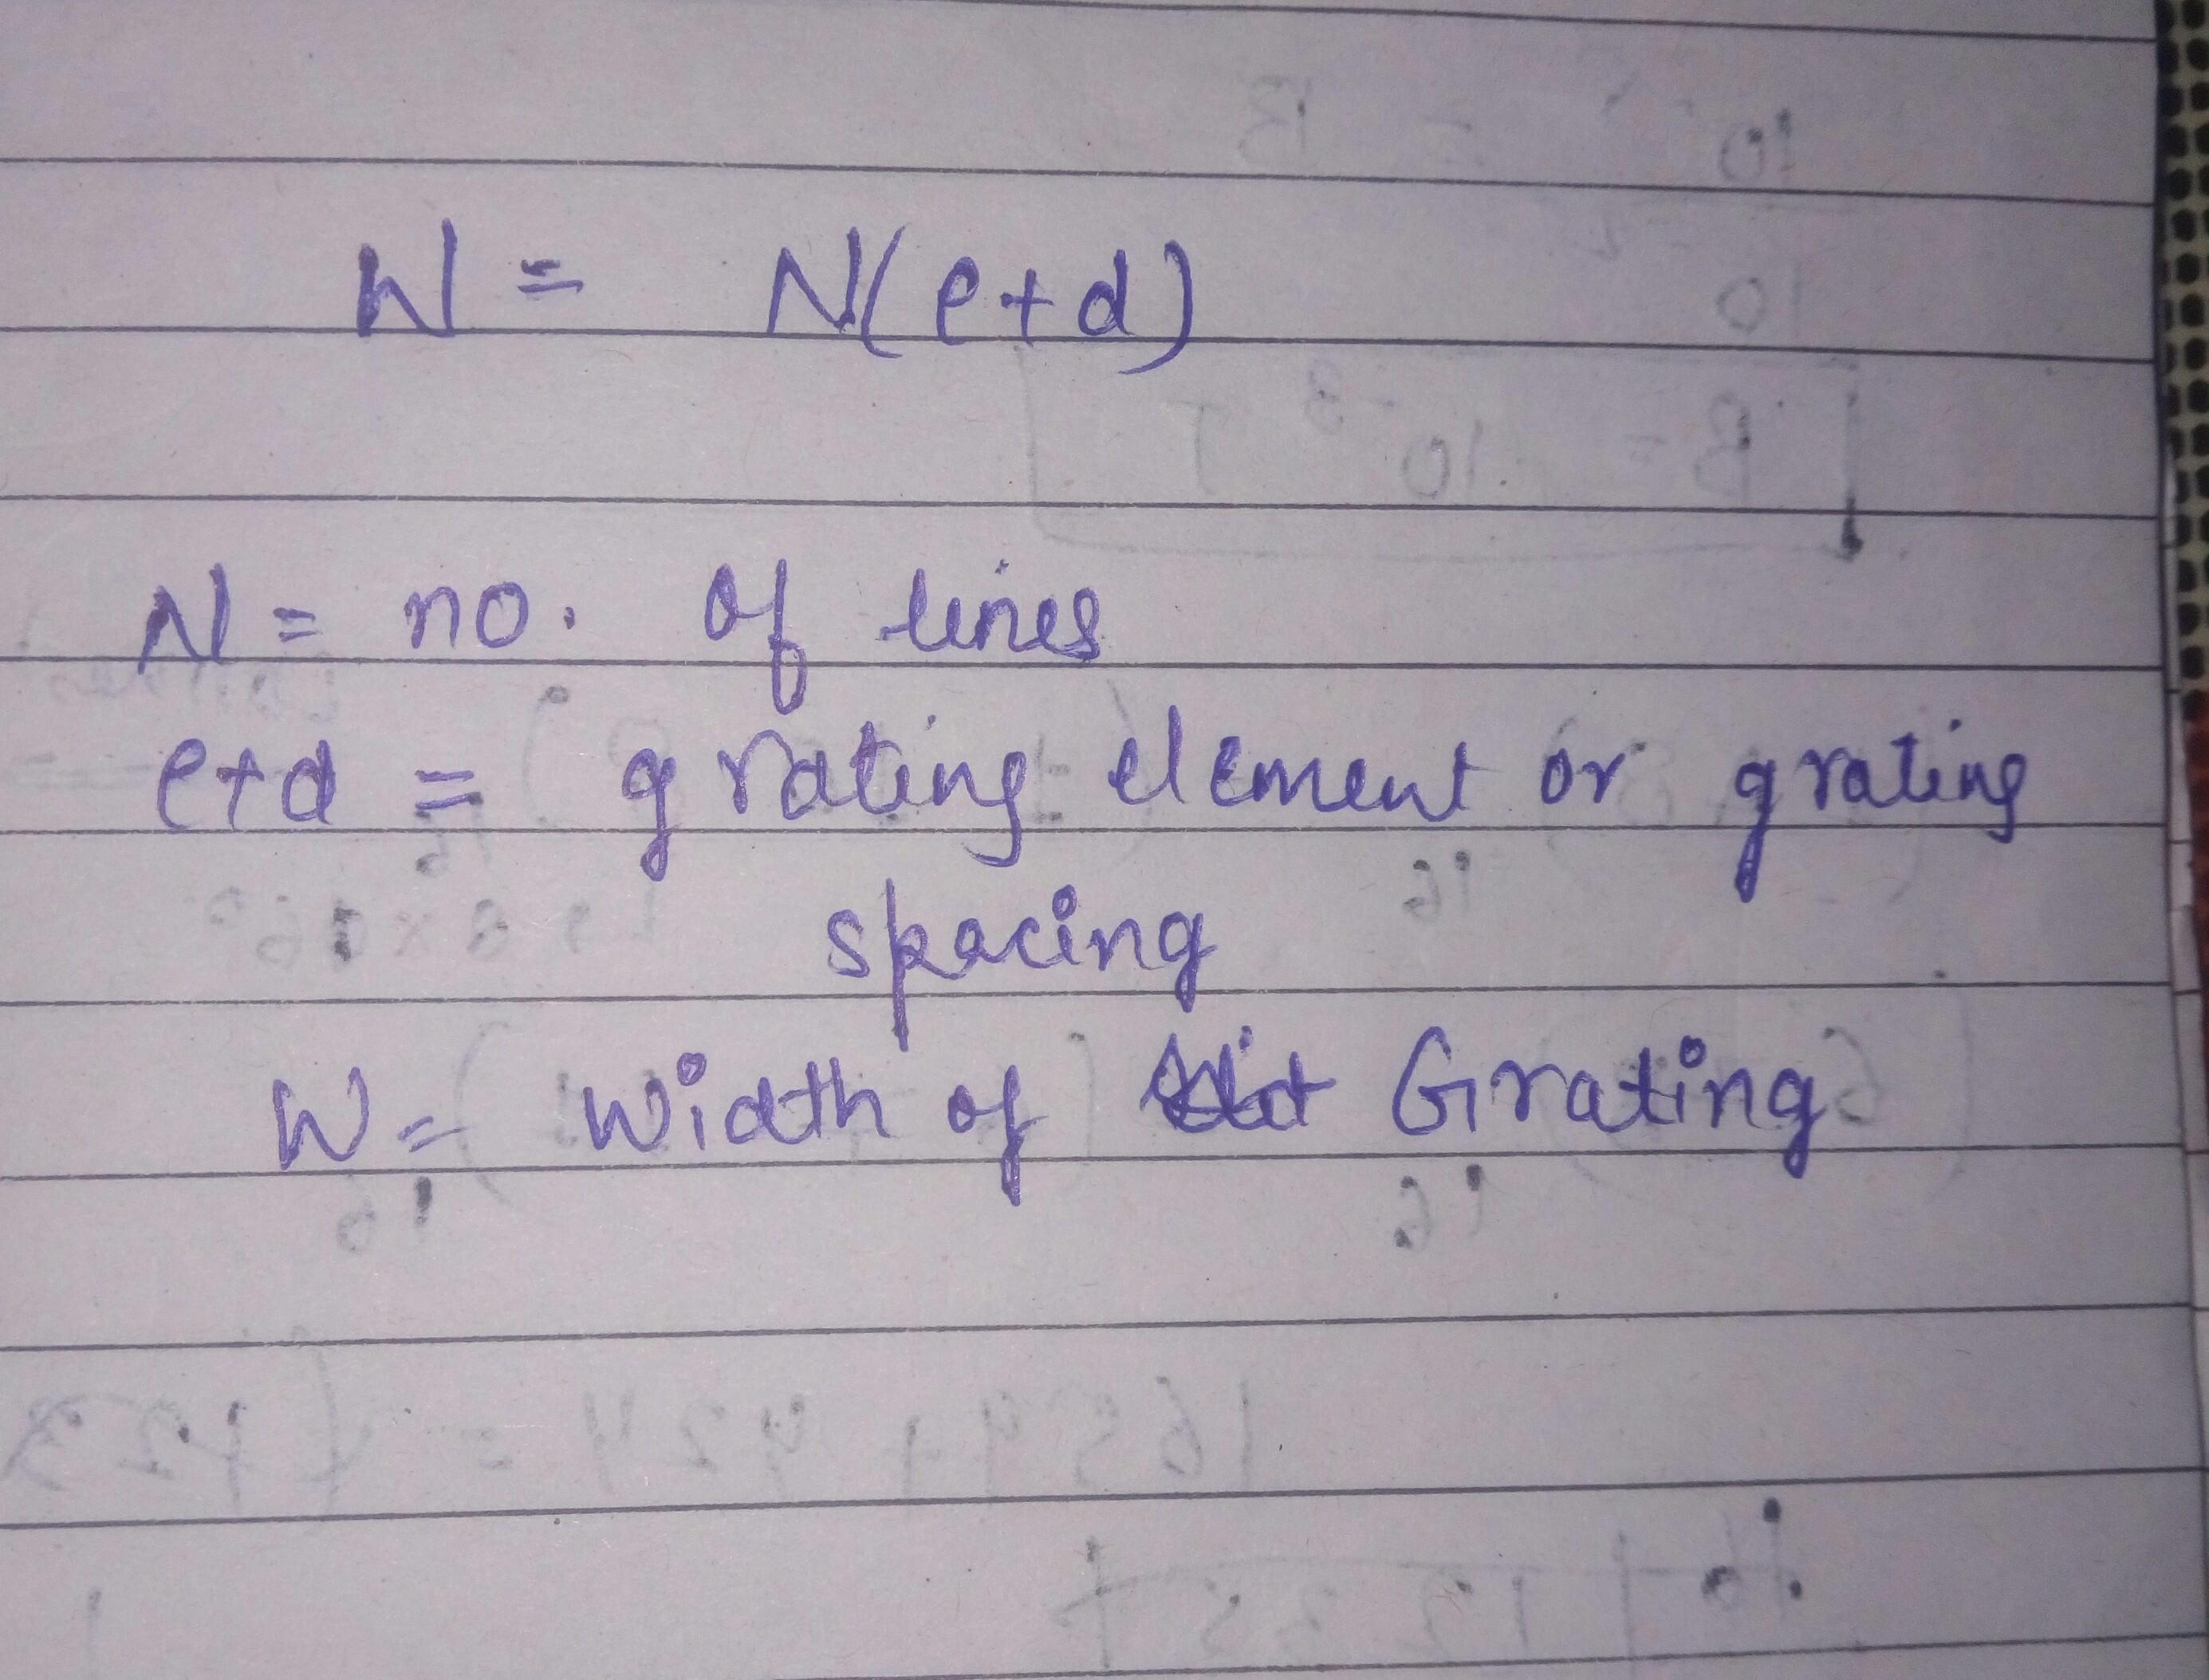 W = N(e+d)
N = no. of lines
e+d = grating element or grating
spacing
W = Width of Grating